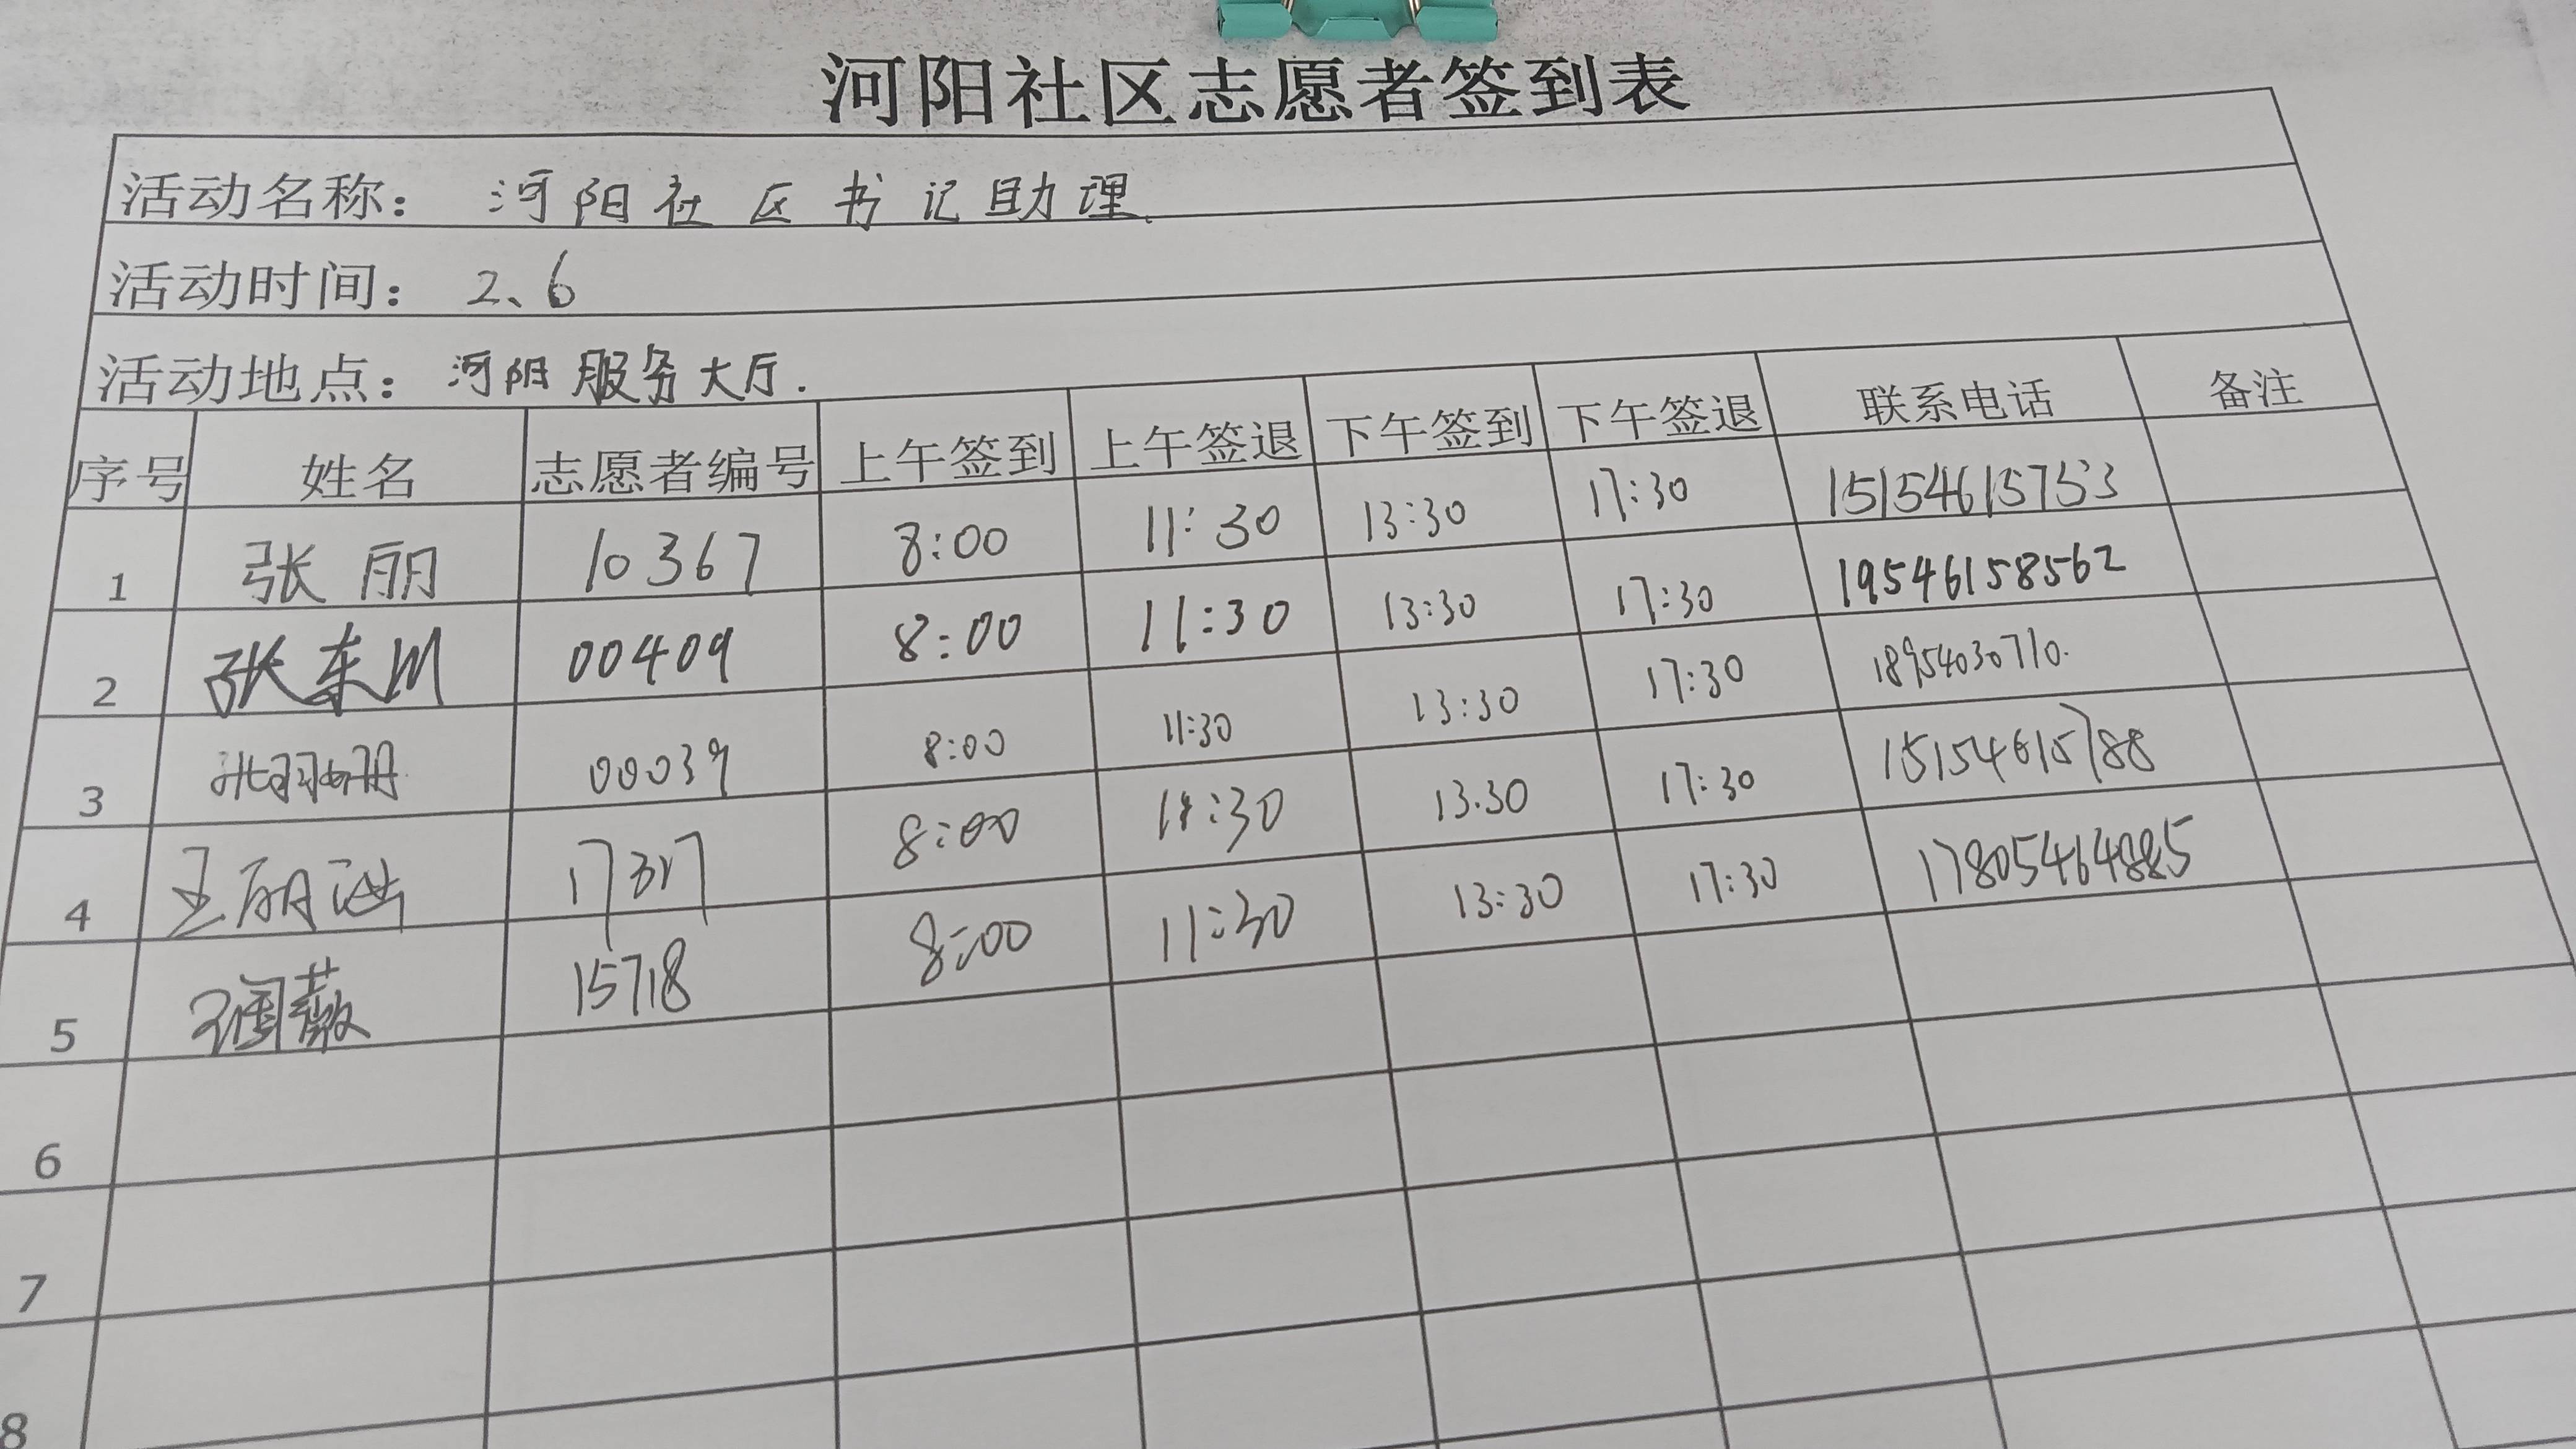 河阳社区志愿者签到表
活动名称: 河阳社区书记助理
活动时间: 2、6
活动地点: 河阳服务大厅.
序号 姓名 志愿者编号 上午签到 上午签退 下午签到 下午签退 联系电话 备注
1 张丽 10367 8:00 11:30 13:30 17:30 15154615753
2 张东川 00409 8:00 11:30 13:30 17:30 19546158562
3 00039 8:00 11:30 13:30 17:30 18954030710.
4 王丽涵 17317 8:00 11:30 13.30 17:30 15154615788
5 15718 8:00 11:30 13:30 17:30 17805464885
6
7
8